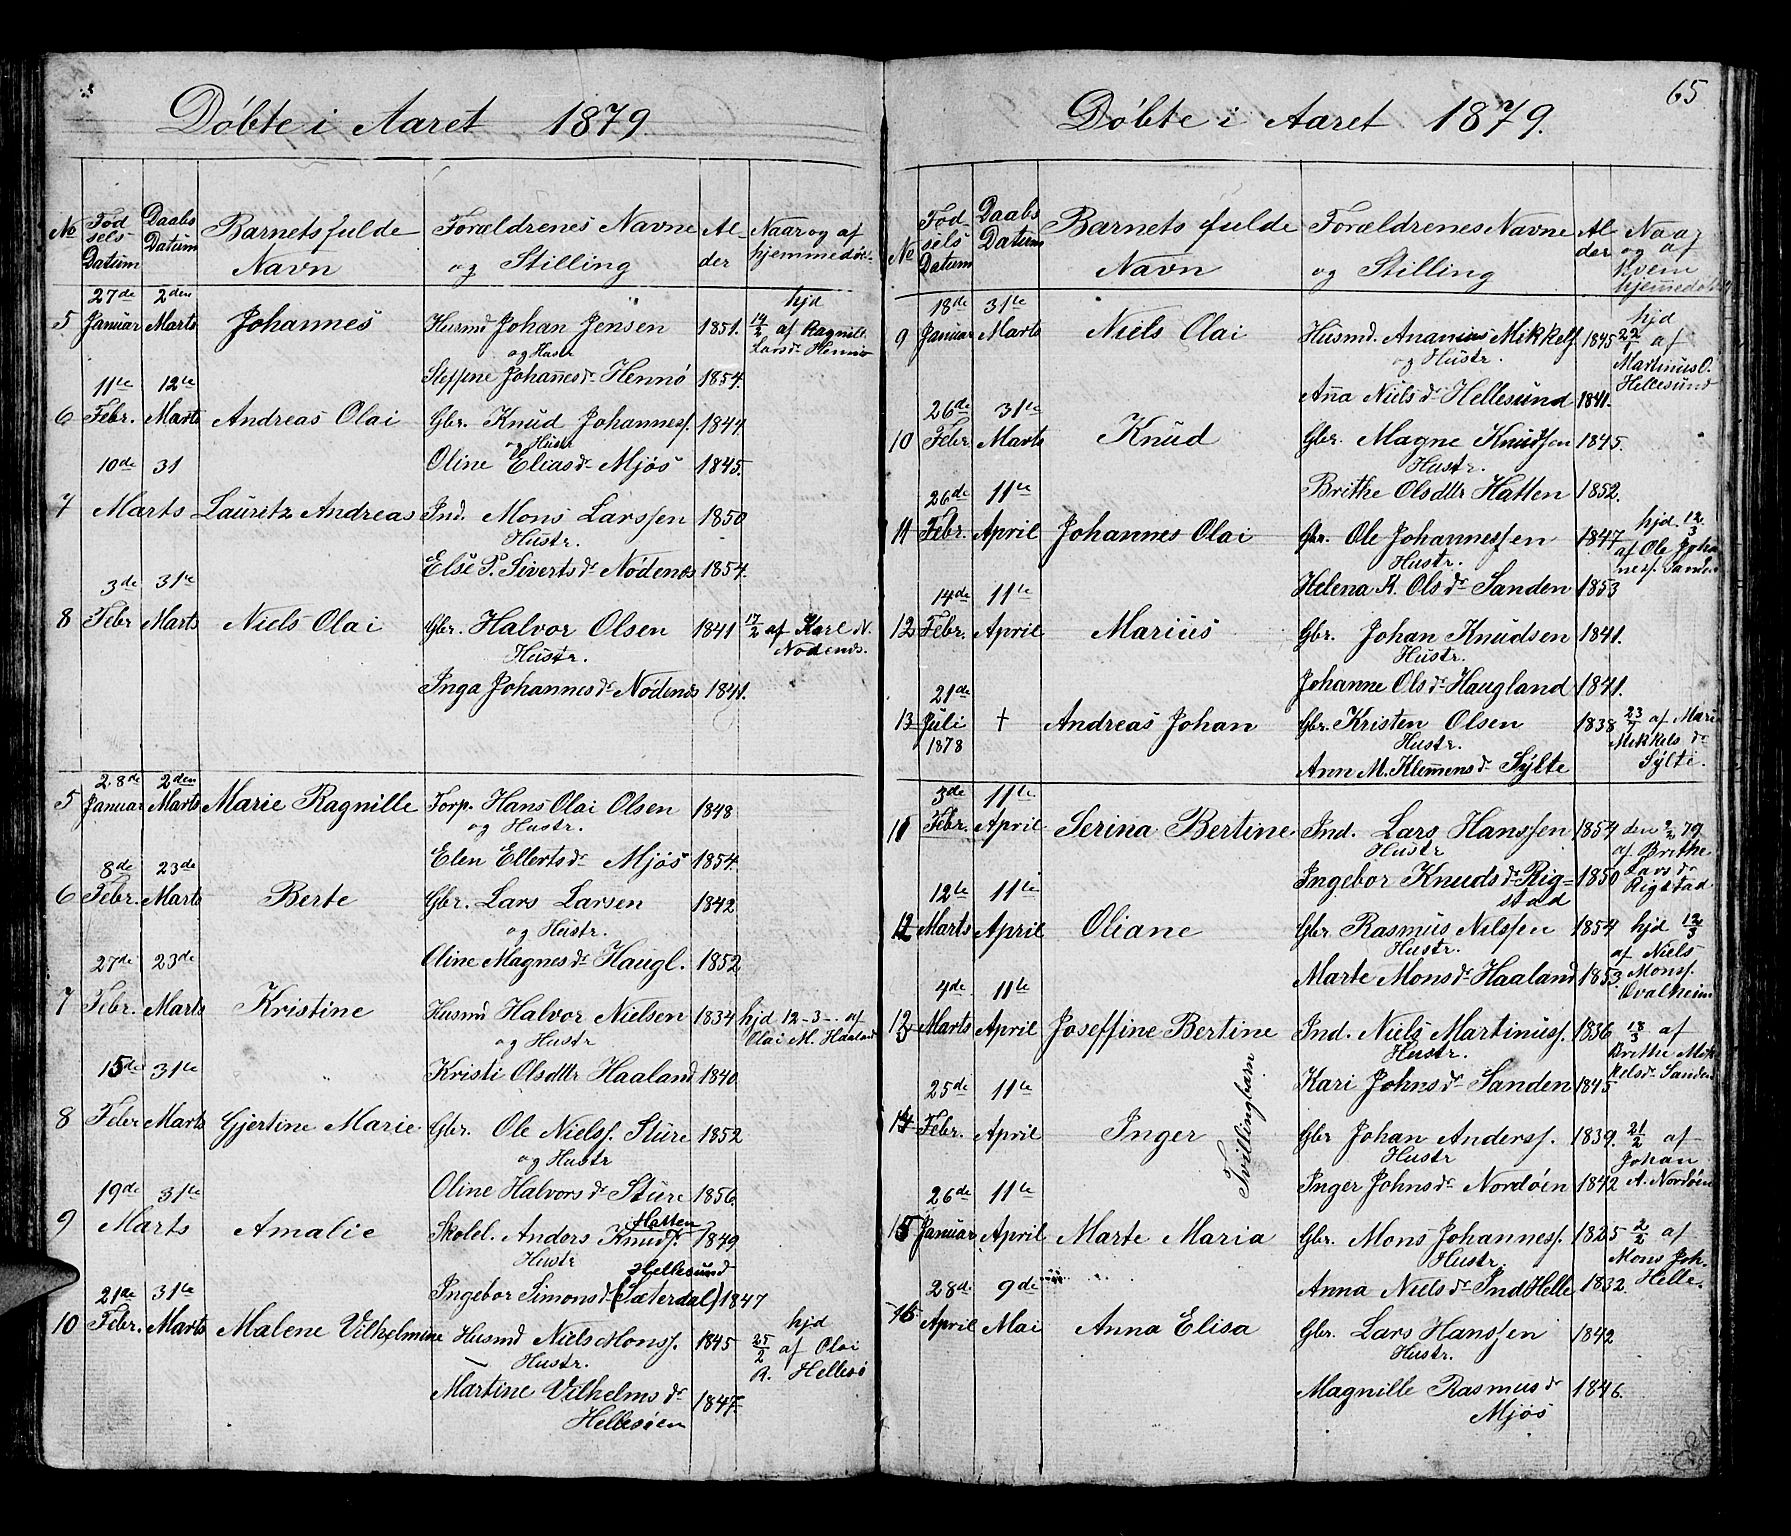 Döbte i Aaret 1879.
No Fødsels Datum Daabs Datum Barnets fulde Navn Forældrenes Navne og Stilling Alder Naar og af hjemmedøbt
27de 2den hjd
5 Januar Marts Johannes Husmd Johan Jensen 1851. af Ragnill
og Hustr Larsdr Hennø
11te 12te Steffine Johannesdr Hennö 1854.
6 Febr. Marts Andreas Olai Gbr. Knud Johannesf. 1844.
og Hustr
10de 31 Oline Eliasdr Mjös 1845.
7 Marts Lauritz Andreas Ind. Mons Larssen 1850
Hustr.
3de 31te Else P. Sivertsdr Nödenæs 1854.
8 Febr Marts Niels Olai Gbr. Halvor Olsen 1841 17/2 af Karl N.
Hustr. Nödenæs.
Inga Johannesdr Nödenæs 1841.
28de 2den
5 Januar Marts Marie Ragnille Torp. Hans Olai Olsen 1848
og Hustr.
8de 23de Elen Ellertsdr Mjös 1854.
6 Febr. Marts Berte Gbr. Lars Larsen 1842
og Hustr.
27de 23de Oline Magnesdr Haugl. 1852
7 Febr. Marts Kristine Husmd Halvor Nielsen 1834 hjd 12-3-. af
og Hustr Olai M. Haaland
15de 31te Kristi Olsdttr Haaland 1840
8 Febr Marts Gjertine Marie Gbr. Ole Nielsf. Sture 1852
og Hustr
19de 31te Oline Halvorsdr Sture 1856.
Hatten
9 Marts Amalie Skolel. Anders Knudsf. 1849
Hustr Hellesund
21de 31te Ingebor Simonsdr (Sæterdal) 1847
10 Febr. Marts Malene Vilhelmine Husmd Niels Monsf. 1845 hjd 25/2 af Olai
Hustr. R. Hellesö
Martine Vilhelmsdr 1847.
Hellesöen
65
Döbte i Aaret 1879.
No Fødsels Datum Daabs Datum Barnets fulde Navn Forældrenes Navne og Stilling Alder Naar og af Hvem hjemmedøbt
18de 31te hjd
9 Januar Marts Niels Olai Husmd. Ananias Mikkelf 1845 22/1 af
og Hustr. Martinus O.
26de 31te Anna Nielsdr Hellesund 1841. Hellesund
10 Febr Marts Knud Gbr. Magne Knudsen 1845.
Hustr.
26de 11te Brithe Olsdttr Hatten 1852.
11 Febr. April Johannes Olai Gbr. Ole Johannessen 1847 hjd. 12/3
Hustr. af Ole Johannesf. Sanden
14de 11te Helena K. Olsdr Sanden 1853
12 Febr. April Marius Gbr. Johan Knudsen 1841.
Hustr.
21de Johanne Olsdr Haugland 1841.
13 Juli † Andreas Johan Gbr. Kristen Olsen 1838 23/7 af Mari
1878 Hustr. Mikkelsdr
Ann M. Klemensdr Sylte Sylte.
3de 11te
11 Febr. April Serina Bertine Ind. Lars Hanssen 1854 den 9/2 79
Hustr af Brithe
12te 11te Ingebor Knudsdr Rigstad 1850 Larsdr Rigstad
12 Marts April Oliane Gbr Rasmus Nilssen 1854 hjd 12/3
Hustr. af Niels
4de 11te Marte Monsdr Haaland 1853. Monsf. Ovalheim
13 Marts April Joseffine Bertine Ind. Niels Martinusf. 1836 13/3 af
Hustr. Brithe Mikkelsdr Sanden
25de 11te Kari Johnsdr Sanden 1845
14 Febr. April Inger Tvillingbarn Gbr Johan Andersf. 1839. 21/2 af
Hustr Johan
26de 11te Inger Johnsdr Nordöen 1842 A. Nordöen
15 Januar April Marte Maria Gbr. Mons Johannesf. 1825 2/2 af
Hustr. Mons Joh.
28de 9de Anna Nielsdr Ind Helle 1832. Helle.
16 April Mai Anna Elisa Gbr. Lars Hanssen 1842
Hustr.
Magnille Rasmusdr 1846.
Mjös